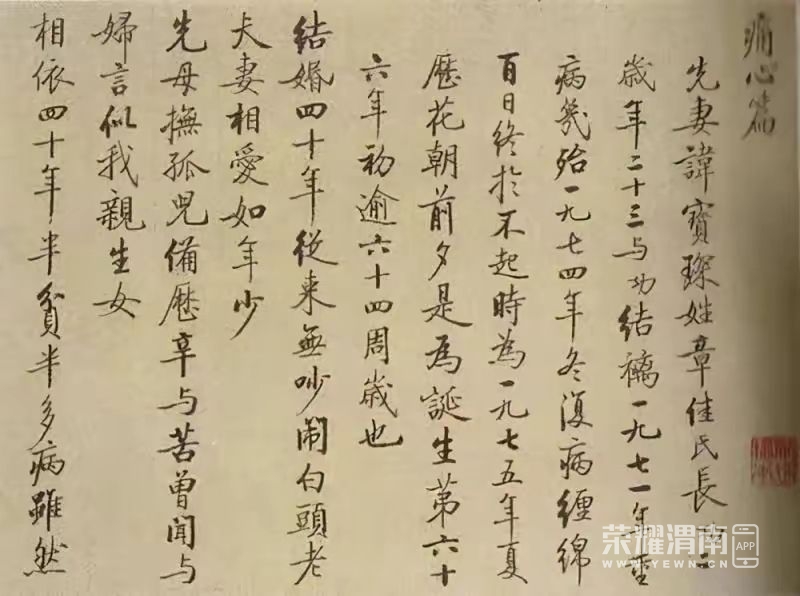 痛心篇
先妻諱寶琛姓章佳氏長功二
歲年二十三与功結褵一九七一年重
病幾殆一九七四年冬復病纏綿
百日終於不起時為一九七五年夏
歷花朝前夕是為誕生第六十
六年初逾六十四周歲也
結婚四十年從来無吵闹白頭老
夫妻相愛如年少
先母撫孤兒備歷辛与苦曾闻与
婦言似我親生女
相依四十年半貧半多病雖然
荣耀渭南
APP
WWW.YEWN.CN